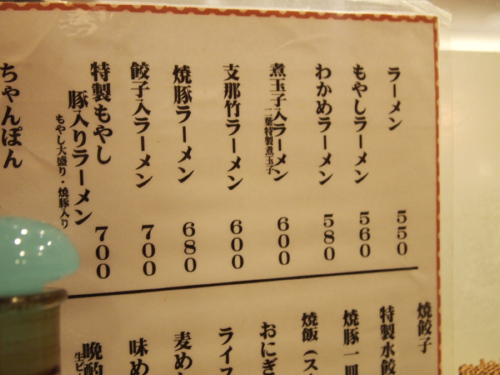 ラーメン 550
もやしラーメン 560
わかめラーメン 580
煮玉子入ラーメン 600
二葉特製煮玉子
支那竹ラーメン 600
焼豚ラーメン 680
餃子入ラーメン 700
特製もやし
豚入りラーメン 700
もやし大盛り・焼豚入り
ちゃんぽん
焼餃子
特製水餃
焼豚一皿
焼飯(ス
おにぎ
ライス
麦め
味め
晩酌
生ビ